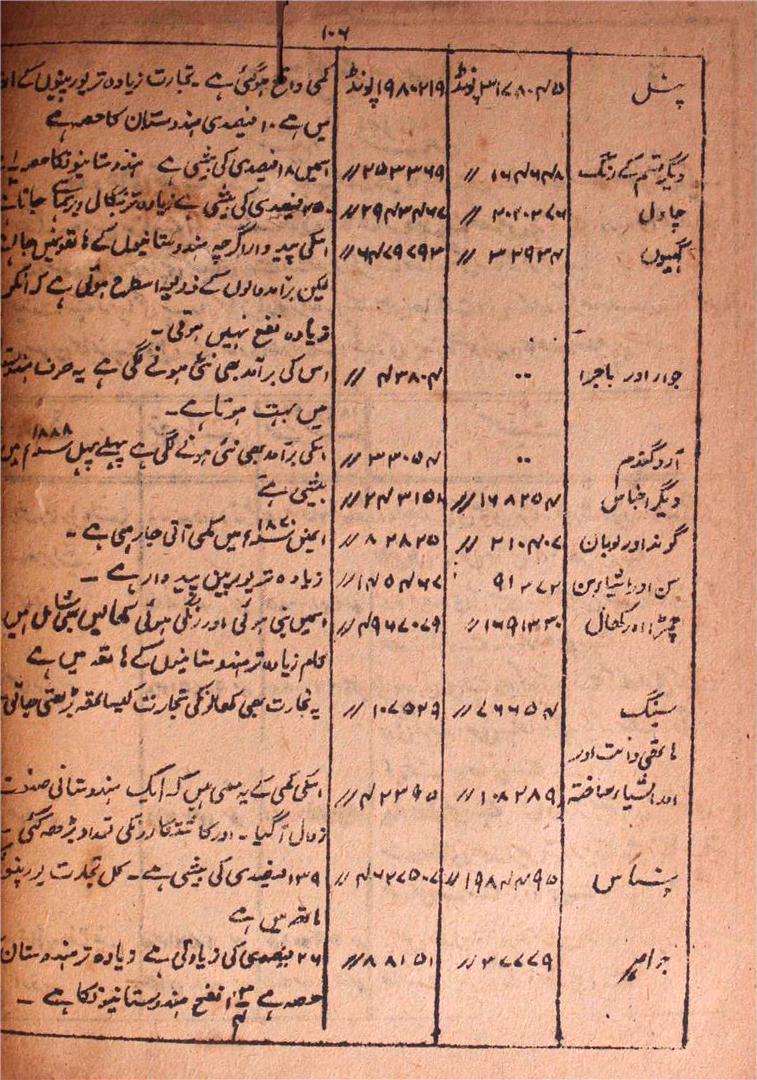 ۱۰۶
پنل ۳۱۷۸۰۴۵ پونڈ ۱۹۸۰۲۱۹ پونڈ کمی واقع ہوگئی ہے ۔ تجارت زیادہ تر یورپینوں کے
میں ہے ۱۰ فیصدی ہندوستان کا حصہ ہے
دیگر قسم کے رنگ ۱۶۴۶۴۸ // ۲۵۳۳۶۹ // اسمیں ۱۸ فیصدی کی بیشی ہے ہندوستانیونکا حصہ
چاول ۲۰۲۰۲۷۶ // ۲۹۴۳۴۶۷ // ۲۵۰ فیصدی کی بیشی ہے زیادہ تر بنگال و برہما جاتا ہے
گیہوں ۳۲۹۳۴ // ۶۴۷۹۷۹۳ // اسکی پیداوار اگرچہ ہندوستانیوں کے ہاتھ میں
لیکن برآمد والوں کے ذریعہ اسطرح ہوتی ہے کہ انکو
زیادہ نفع نہیں ہوتی ۔
جوار اور باجرا ۰۰ ۴۳۸۰۴ // اس کی برآمد بھی نئی ہونے لگی ہے یہ صرف
میں بہت ہوتا ہے ۔
آرد گندم ۰۰ ۳۳۰۵۴ // اسکی برآمد بھی نئی ہونے لگی ہے پہلے پہل ۱۸۸۸ء میں
دیگر اجناس ۱۶۸۲۵۴ // // بیشی ہے
گوند اور لوبان ۲۱۰۴۰۷ // ۸۲۸۲۵ // اسمیں ۱۸۷۰ء میں کمی آتی جارہی ہے ۔
سن اور اشیاء سن ۹۱۲۷۲ ۱۴۵۴۶۷ // زیادہ تر یورپین پیداوار ہے ۔
چمڑا اور کھال ۱۶۹۱۳۳۰ // ۴۹۶۷۰۷۹ // اسمیں بنی ہوئی اور رنگی ہوئی کھالیں بھی شامل ہیں
کام زیادہ تر ہندوستانیوں کے ہاتھ میں ہے
سینگ ۷۶۶۵۴ // ۱۰۷۵۲۹ // یہ تجارت بھی کھالونکی تجارت کیساتھ بڑھتی جاتی
ہاتھی دانت اور
اور اشیاء ساختہ ۱۰۸۲۸۹ // ۴۲۳۹۵ // اسکی کمی کے یہ معنی ہیں کہ ایک ہندوستانی صنعت
زوال آگیا ۔ اور کاشتکارونکی تعداد بڑھ گئی ۔
۱۹۸۴۴۹۵ // // ۱۳۹ فیصدی کی بیشی ہے ۔ کل تجارت
ہاتھ میں ہے
جواہر ۲۷۷۷۹ // ۸۸۱۵۱ // ۲۶ فیصدی کی زیادتی ہے زیادہ تر ہندوستان
حصہ ہے نفع ہندوستانیونکا ہے ۔